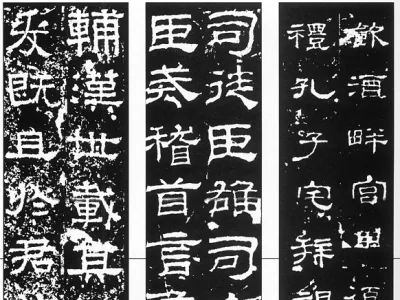 飲酒畔宮畢復
禮孔子宅拜謁
司徒臣雄司
臣戒稽首言
輔漢世載其
爰既且於君